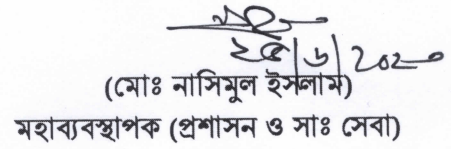 ২৫|৬|২০২০
(মোঃ নাসিমুল ইসলাম)
মহাব্যবস্থাপক (প্রশাসন ও সাঃ সেবা)